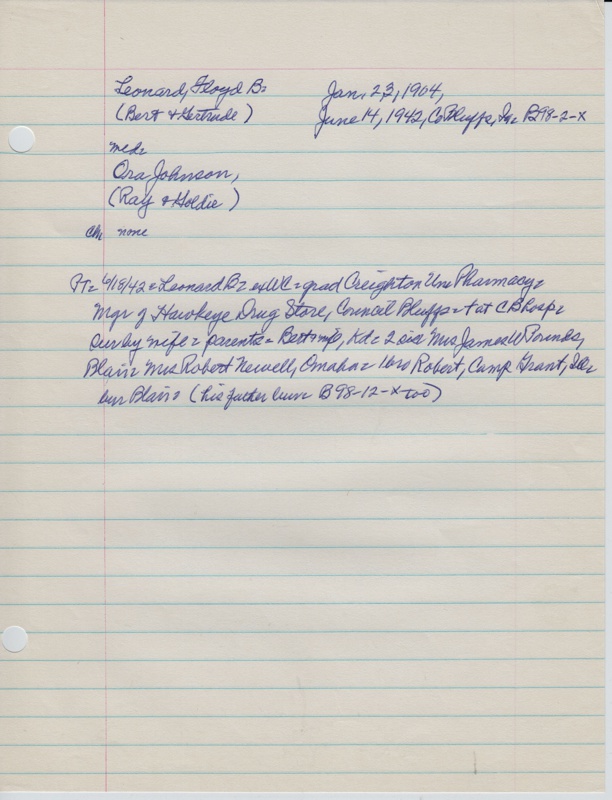 Leonard, Floyd B= Jan. 23, 1904,
(Bert & Gertrude) June 14, 1942, Co Bluffs, Ia= B98-2-X
med=
Ora Johnson,
(Ray & Goldie)
Ch= none
6/18/42 = Leonard B= ex WC = grad Creighton Uni Pharmacy=
Mgr of Hawkeye Drug Store, Council Bluffs = + at CB hosp=
surby wife = parents = Bert, = 2 sis Mrs James W Pounds,
Blair= Mrs Robert Newell, Omaha= 1 bro Robert, Camp Grant, Ill=
bur Blair= (his father bur= B98-12-X too)